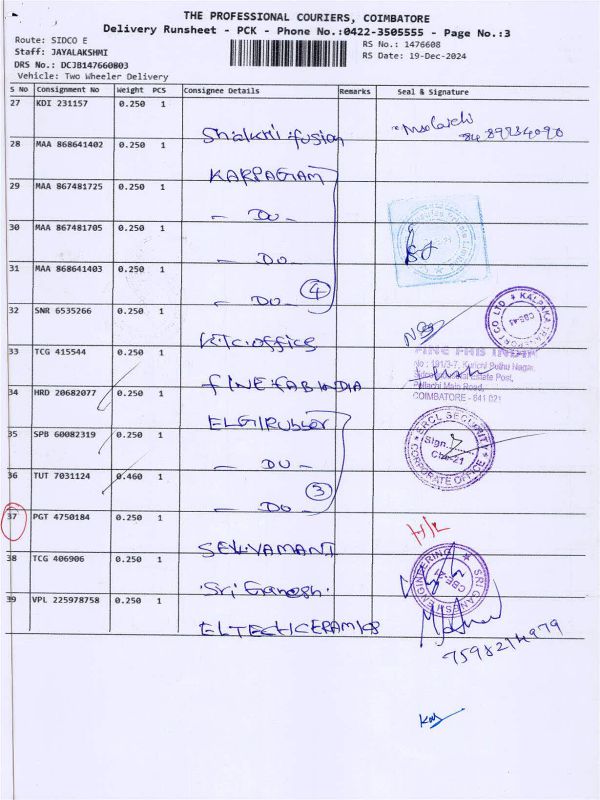 THE PROFESSIONAL COURIERS, COIMBATORE
Delivery Runsheet - PCK - Phone No.:0422-3505555 - Page No.:3
Route: SIDCO E
RS No.: 1476608
Staff: JAYALAKSHMI
RS Date: 19-Dec-2024
DRS No.: DCJB147660803
Vehicle: Two Wheeler Delivery
S No Consignment No Weight PCS Consignee Details Remarks Seal & Signature
27 KDI 231157 0.250 1
Shakthi fusion
28 MAA 868641402 0.250 1
KARPAGAM
29 MAA 867481725 0.250 1
- DO -
30 MAA 867481705 0.250 1
- DO -
31 MAA 868641403 0.250 1
- DO - 4
32 SNR 6535266 0.250 1
KTC office
KALPAKA TRANSPORT CO LTD
CBE-43
33 TCG 415544 0.250 1
FINE FAB INDIA
No : 191/3-7, Kurichi Pudhu Nagar,
Pollachi Main Road,
COIMBATORE - 641 021
34 HRD 20682077 0.250 1
ELGI Rubber
35 SPB 60082319 0.250 1
- DO -
ERCL SECURITY
Sign.
Cbe-21
CORPORATE OFFICE
36 TUT 7031124 0.460 1
- DO - 3
37 PGT 4750184 0.250 1
SELVAMANI
38 TCG 406906 0.250 1
Sri Ganesh
SRI GANESH ENGINEERING
CBE-21
39 VPL 225978758 0.250 1
ELTECH CERAMICS
7598214979